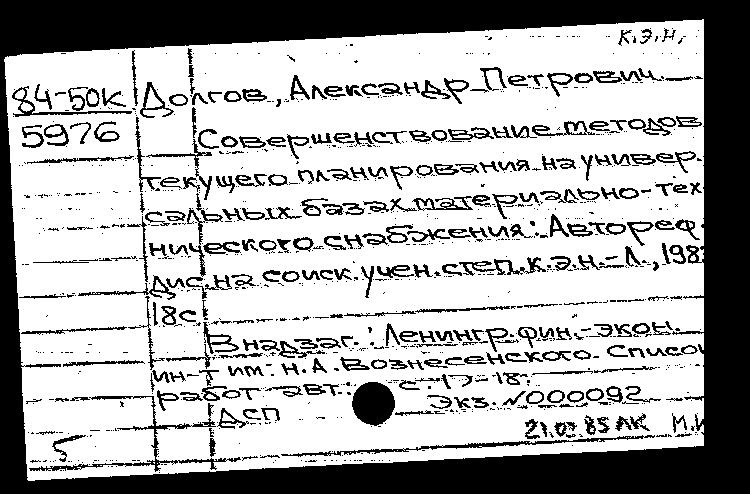 К.Э.Н.
84-50К
5976
Долгов, Александр Петрович
Совершенствование методов
текущего планирования на универ-
сальных базах материально-тех-
нического снабжения: Автореф.
дис. на соиск. учен. степ. к.э.н. - Л., 198
18с
В надзаг.: Ленингр. фин.-экон.
ин-т им. Н.А. Вознесенского. Список
работ авт.: с. 17-18.
ДСП Экз. №000092
5 85 ЛК М.И